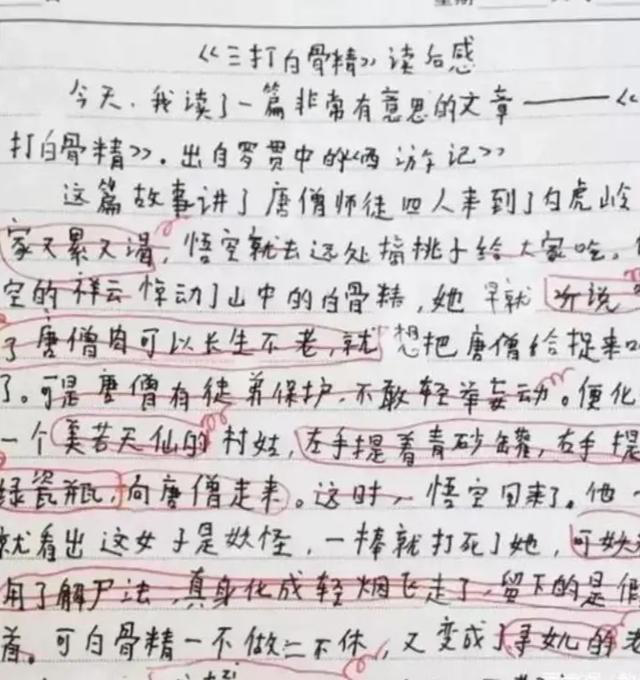 《三打白骨精》读后感
今天,我读了一篇非常有意思的文章——《
打白骨精》。出自罗贯中的《西游记》
这篇故事讲了唐僧师徒四人来到了白虎岭
家又累又渴,悟空就去远处摘桃子给大家吃。
空的祥云惊动了山中的白骨精,她早就听说
了唐僧肉可以长生不老,就想把唐僧给捉来
了。可是唐僧有徒弟保护,不敢轻举妄动。便化
一个美若天仙的村姑,左手提着青砂罐,右手提
绿瓷瓶,向唐僧走来。这时,悟空回来了。他
就看出这女子是妖怪,一棒就打死了她,可妖
用了解尸法,真身化成轻烟飞走了,留下的是假
着。可白骨精一不做二不休,又变成了寻女儿的老